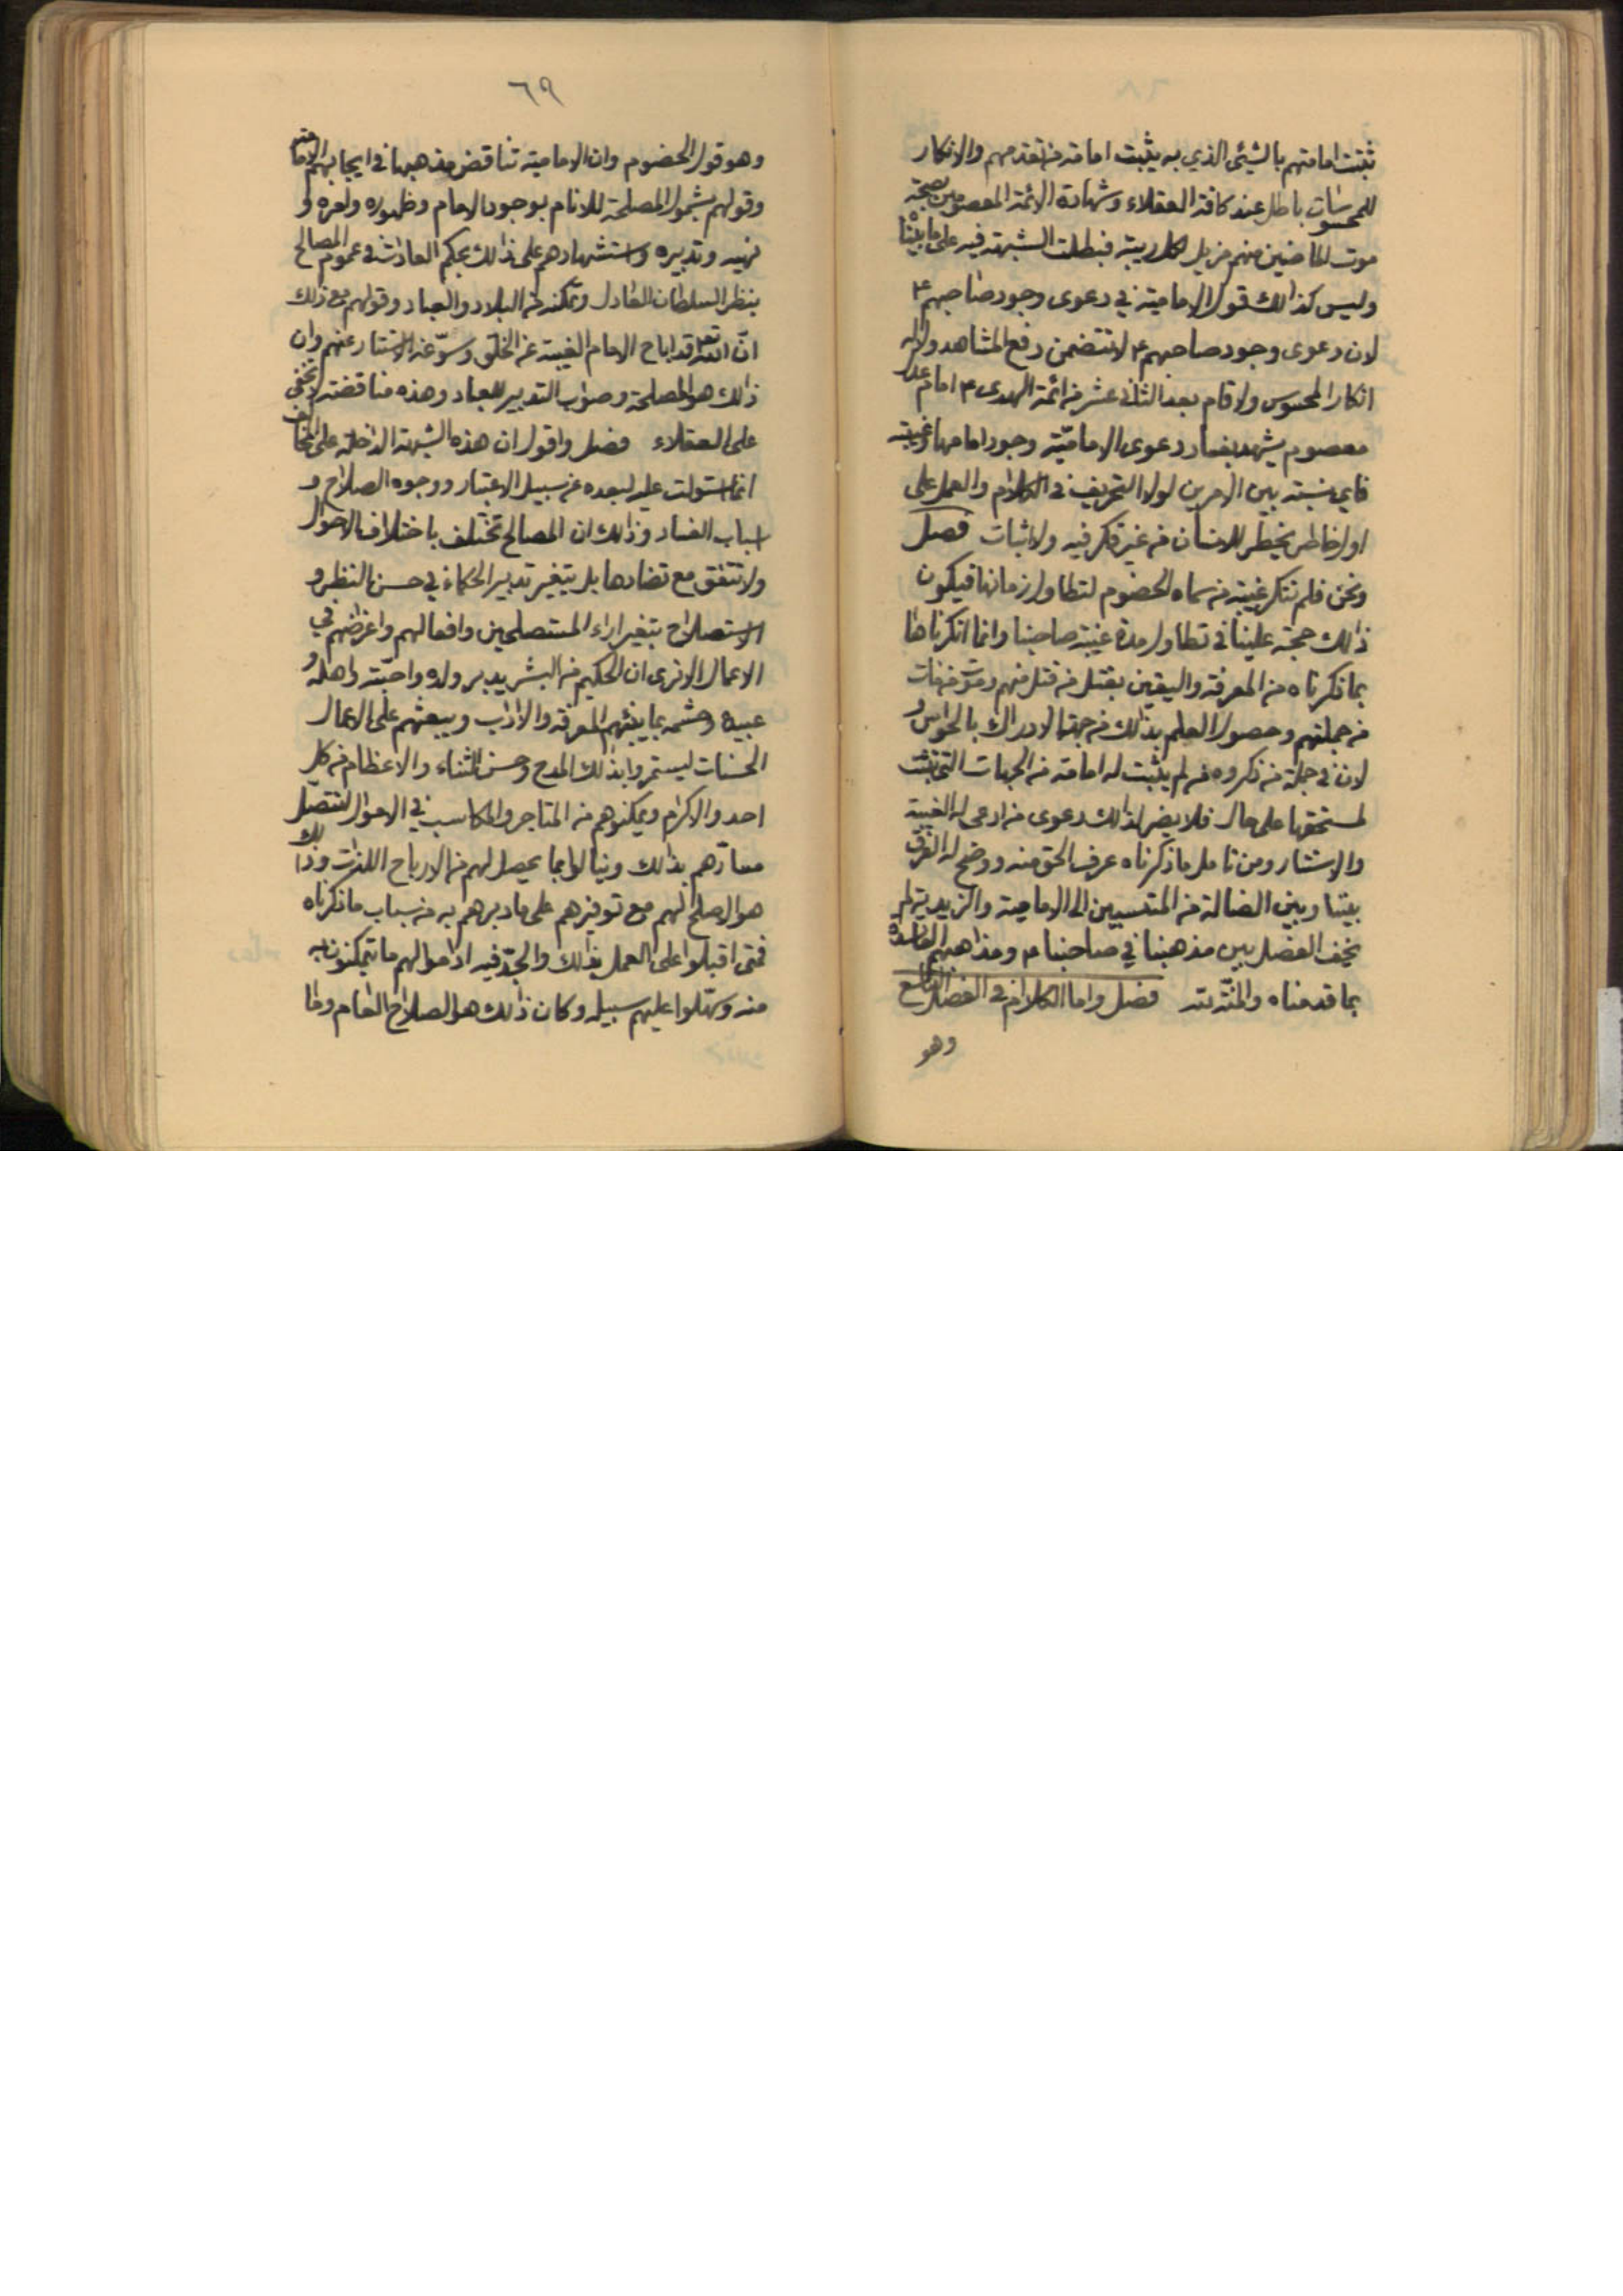 ثبتت امامتهم بالشيئ الذي به يثبت امامة من تقدمهم والانكار
للمحسوسات باطل عند كافة العقلاء وشهادة الائمة المعصومين بصحة
موت الماضين منهم مزيل لكل ريبة فبطلت الشبهة فيه على ما بيّنا
وليس كذلك قول الامامية في دعوى وجود صاحبهم ع
لان دعوى وجود صاحبهم ع لا تتضمن دفع المشاهد ولا له
انكار المحسوس ولا قام بعد الثاني عشر من ائمة الهدى ع امام عدل
معصوم يشهد بفساد دعوى الاماميّة وجود امامها وغيبته
فاي نسبة بين الامرين لولا التحريف في الكلام والعمل على
اول خاطر يخطر للانسان من غير فكر فيه ولا اثبات فصل
ونحن فلم ننكر غيبة من سماه الخصوم لتطاول زمانها فيكون
ذلك حجة علينا في تطاول مدة غيبة صاحبنا وانما انكرناها
بما ذكرناه من المعرفة واليقين بقتل من قتل منهم وموت من مات
من جملتهم وحصول العلم بذلك من جهة الادراك بالحواس و
لان في جملة من ذكروه من لم يثبت له امامة من الجهات التي تثبت
لمستحقها على حال فلا يضر لذلك دعوى من ادعى له الغيبة
والاستتار ومن تامل ما ذكرناه عرف الحق منه ووضح له الفرق
بيننا وبين الضالة من المنتسبين الى الامامية والزيدية لم
يخف الفصل بين مذهبنا في صاحبنا ع ومذاهبهم الفاسدة
بما قدمناه والمنّة لله فصل واما الكلام في الفصل الرابع
وهو
٦٩
وهو قول الخصوم وان الامامية تناقض مذهبها في ايجابهم الامامة
وقولهم بشمول المصلحة للانام بوجود الامام وظهوره وامره و
نهيه وتدبيره واستشهادهم على ذلك بحكم العادات في عموم المصالح
بنظر السلطان العادل وتمكنه من البلاد والعباد وقولهم مع ذلك
انّ الله تعالى قد اباح الامام الغيبة عن الخلق وسوّغه الاستتار عنهم وان
ذلك هو المصلحة وصواب التدبير للعباد وهذه مناقضة لا تخفى
على العقلاء فصل واقول ان هذه الشبهة الداخلة على المخالف
انما استولت عليه لبعده عن سبيل الاعتبار ووجوه الصلاح و
اسباب الفساد وذلك ان المصالح تختلف باختلاف الاحوال
ولا تتفق مع تضادها بل يتغير تدبير الحكماء في حسن النظر و
الاستصلاح بتغير اراء المستصلحين وافعالهم واغراضهم في
الاعمال الا ترى ان الحكيم من البشر يدبر ولده واحبّته واهله و
عبيده وحشمه بما يثبهم المعرفة والاداب ويبعثهم على الاعمال
الحسنات ليستمروا بذلك المدح وحسن الثناء والاعظام من كل
احد والاكرام ويمكنوهم من المتاجر والمكاسب في الاموال لتتصّل
مسارّهم بذلك وينالوا بما يحصل لهم من الارباح اللذات وذلك
هو الاصلح لهم مع توفيرهم على ما دبرهم به من اسباب ما ذكرناه
فمتى اقبلوا على العمل بذلك والجدّ فيه اداموا لهم ما يتمكنون به
منه وسهّلوا عليهم سبيله وكان ذلك هو الصلاح العام وما